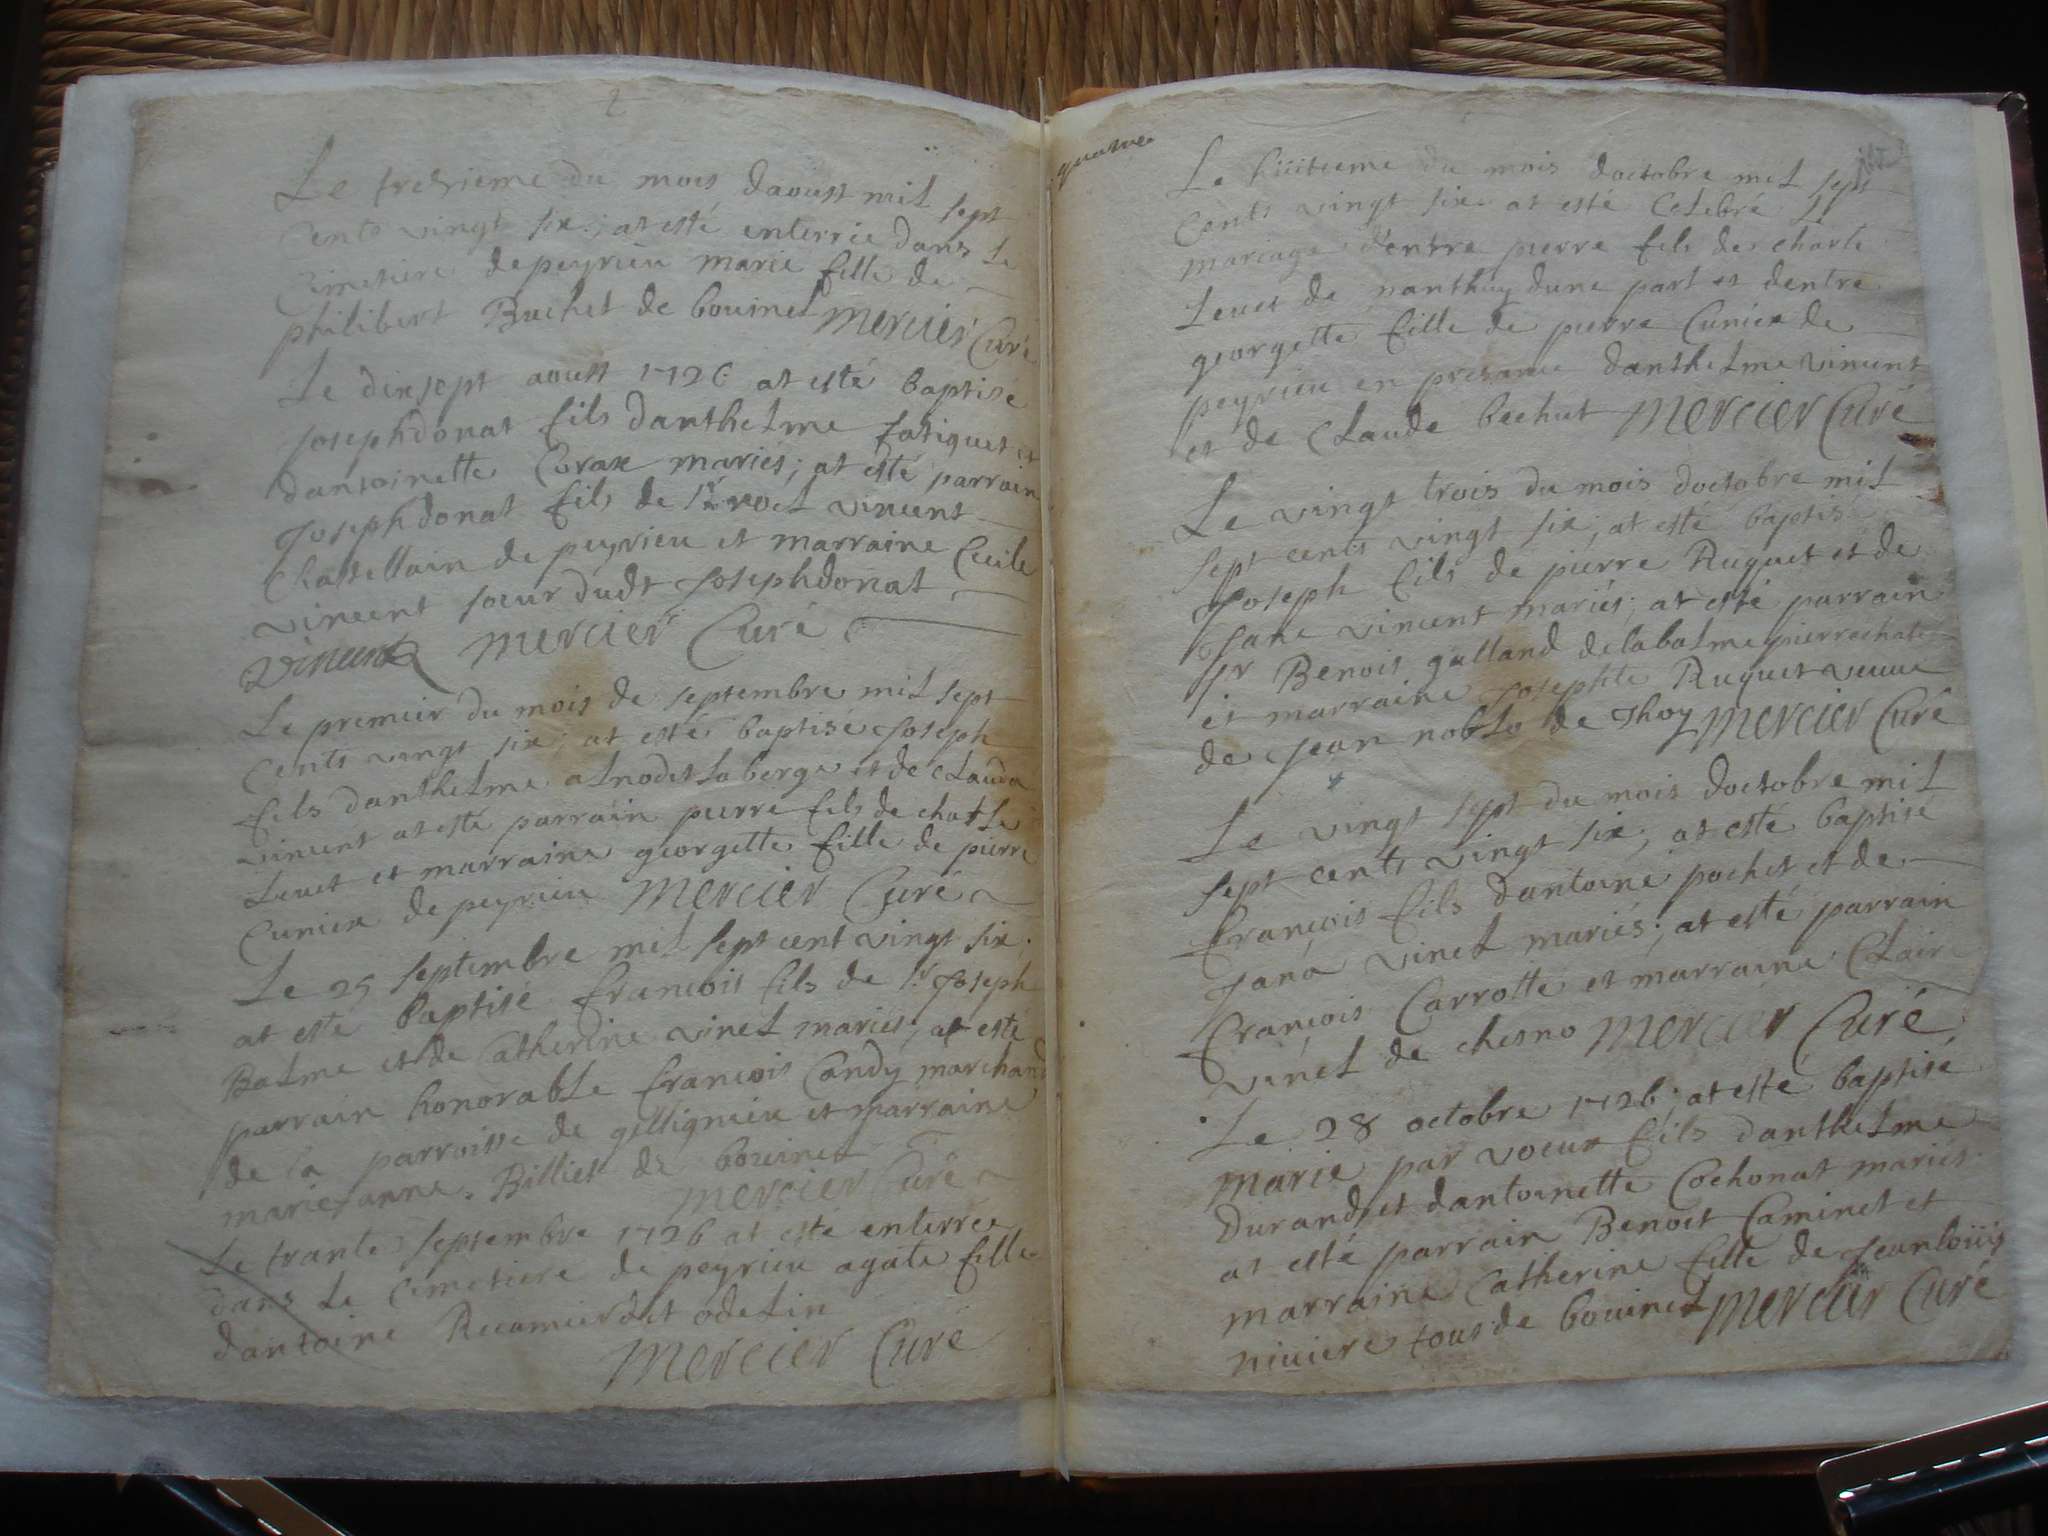 2
Le treizieme du mois daoust mil sept
Cents vingt six; at esté enterrie dans Le
Cimetiere de peyrieu marie fille de
philibert Buchet de bouinel mercier Curé
Le dixsept aoust 1726 at esté baptisé
Josephdonat fils danthelme fatiguet et
dantoinette Corax mariés; at esté parrain
Josephdonat fils de Sr noel vincent
Chastellain de peyrieu et marraine Cecile
vincent soeur dudt Josephdonat
Vincent mercier Curé
Le premier du mois de septembre mil sept
Cents vingt six; at esté baptisé Joseph
fils danthelme alnodet Laberge et de Clauda
vincent at esté parrain pierre fils de charle
Leuet et marraine georgette fille de pierre
Cunier de peyrieu mercier Curé
Le 25 septembre mil sept cent vingt six;
at esté baptisé francois fils de Sr Joseph
Balme et de Catherine vinel mariés; at esté
parrain honorable francois Candy marchand
de la parroisse de gellignieu et marraine
marie anne Billiet de bouinel
mercier Curé
Le trante septembre 1726 at esté enterrée
dans Le Cimetiere de peyrieu agate fille
dantoine Recamier dit odelin
mercier Curé
Le huitieme du mois doctobre mil sept
Cents vingt six at esté Celebré Le
mariage dentre pierre fils de charle
Leuet de nanthuy dune part et dentre
georgette fille de pierre Cunier de
peyrieu en presance danthelme vincent
et de Claude bechut mercier Curé
Le vingt trois du mois doctobre mil
sept cents vingt six; at esté baptisé
Joseph fils de pierre Ruquet et de
Jane vincent mariés; at esté parrain
Sr Benois galland de labalme pierrechatel
et marraine Josephte Ruquet veuue
de Jean noblo de Thoy mercier Curé
Le vingt sept du mois doctobre mil
sept cents vingt six; at esté baptisé
francois fils dantoine pochet et de
Jana vinel mariés; at esté parrain
francois Carrotte et marraine Claire
vinel de chesno mercier Curé
Le 28 octobre 1726; at esté baptisé
marie par voeux fils danthelme
Durand et dantoinette Cochonat mariés
at esté parrain Benoit Caminet et
marraine Catherine fille de Jeanlouis
niuiere tous de bouinel mercier Curé